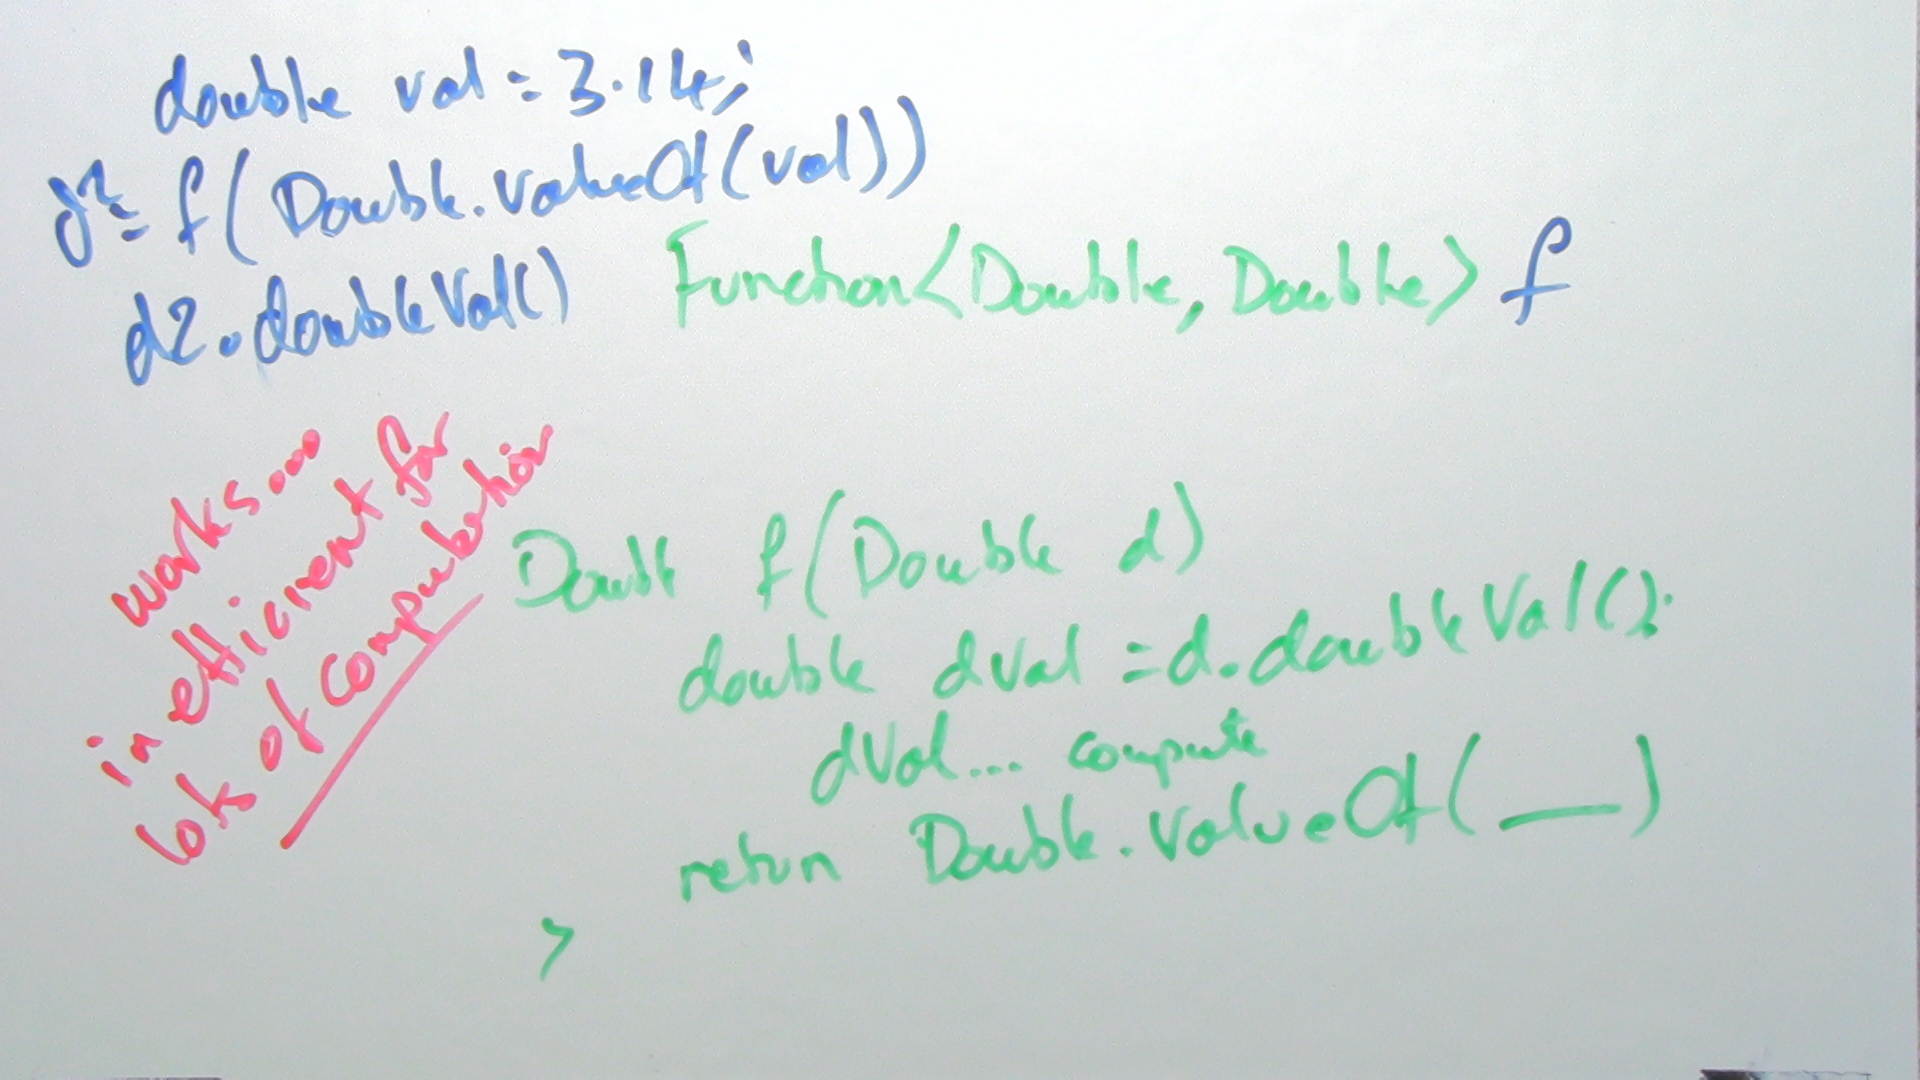 double val = 3.14;
d2 = f(Double.valueOf(val))
d2.doubleVal()
Function<Double, Double> f
works...
inefficient for
lots of computation
Double f(Double d)
double dval = d.doubleVal();
dVal... compute
return Double.valueOf(__)
}